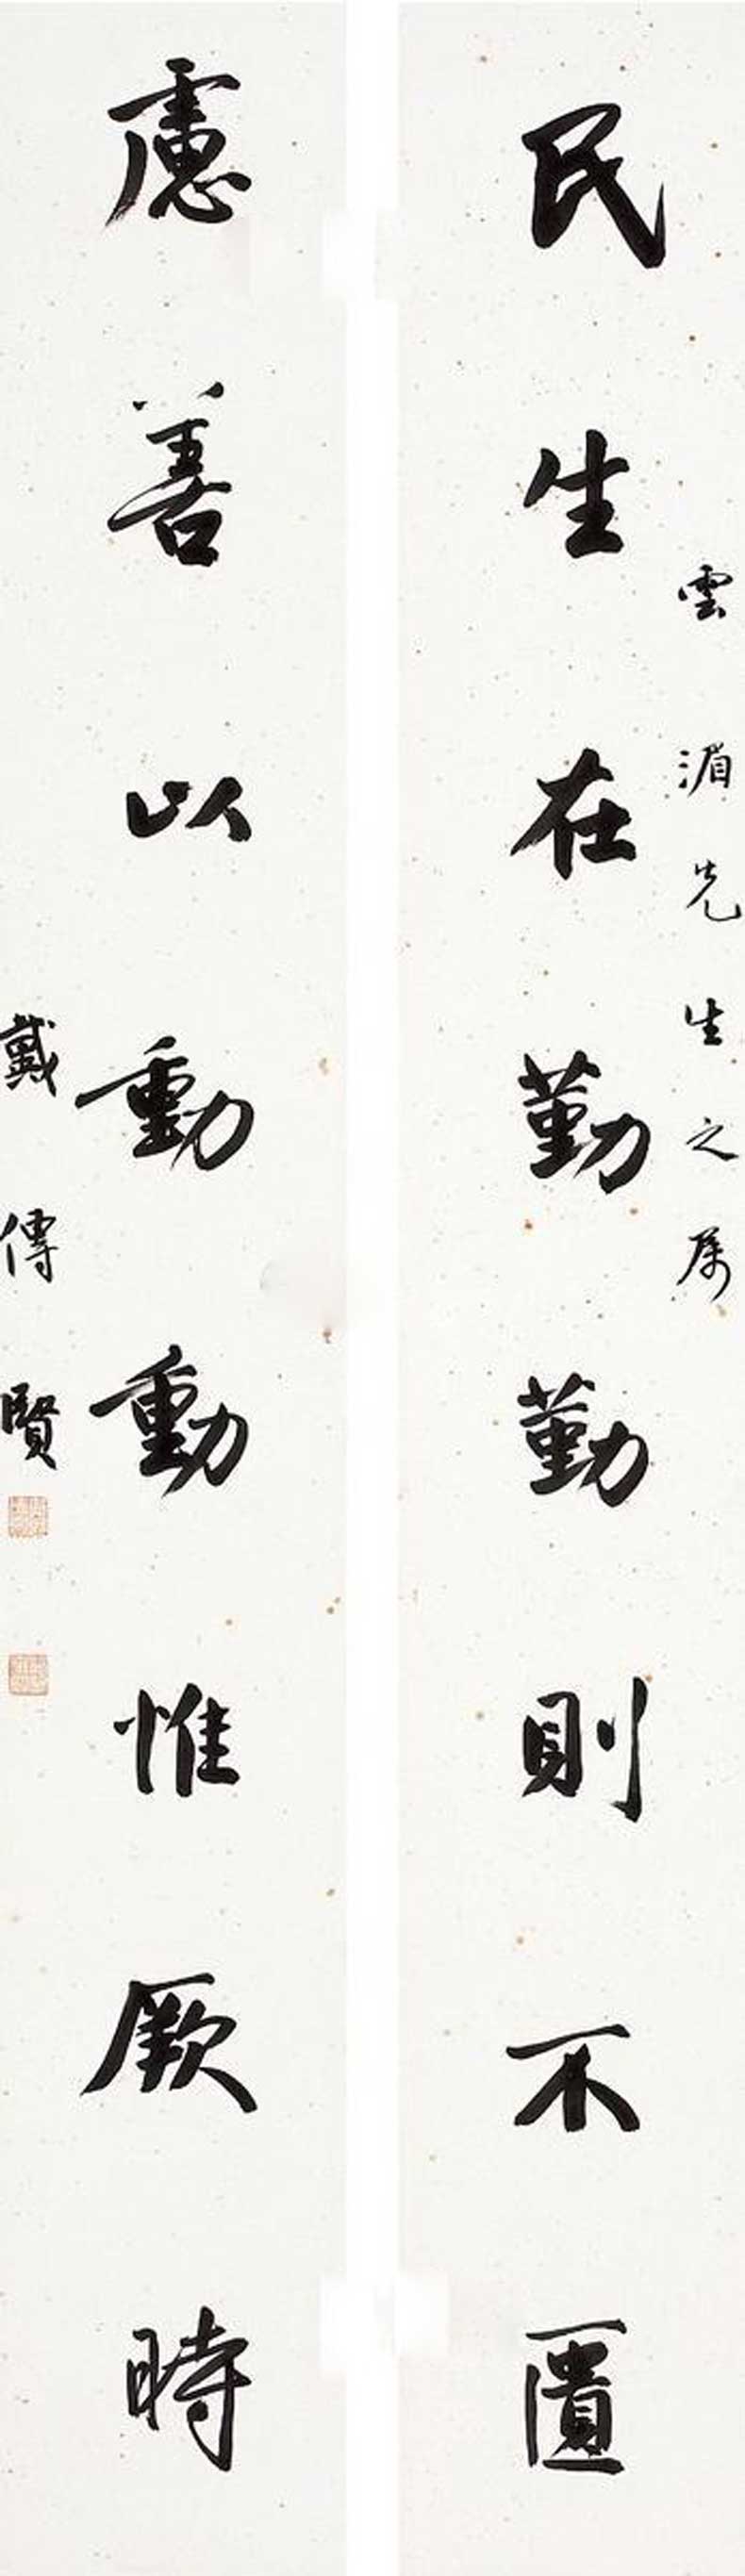 雲湄先生之属
民生在勤勤則不匱
慮善以動動惟厥時
戴傳賢